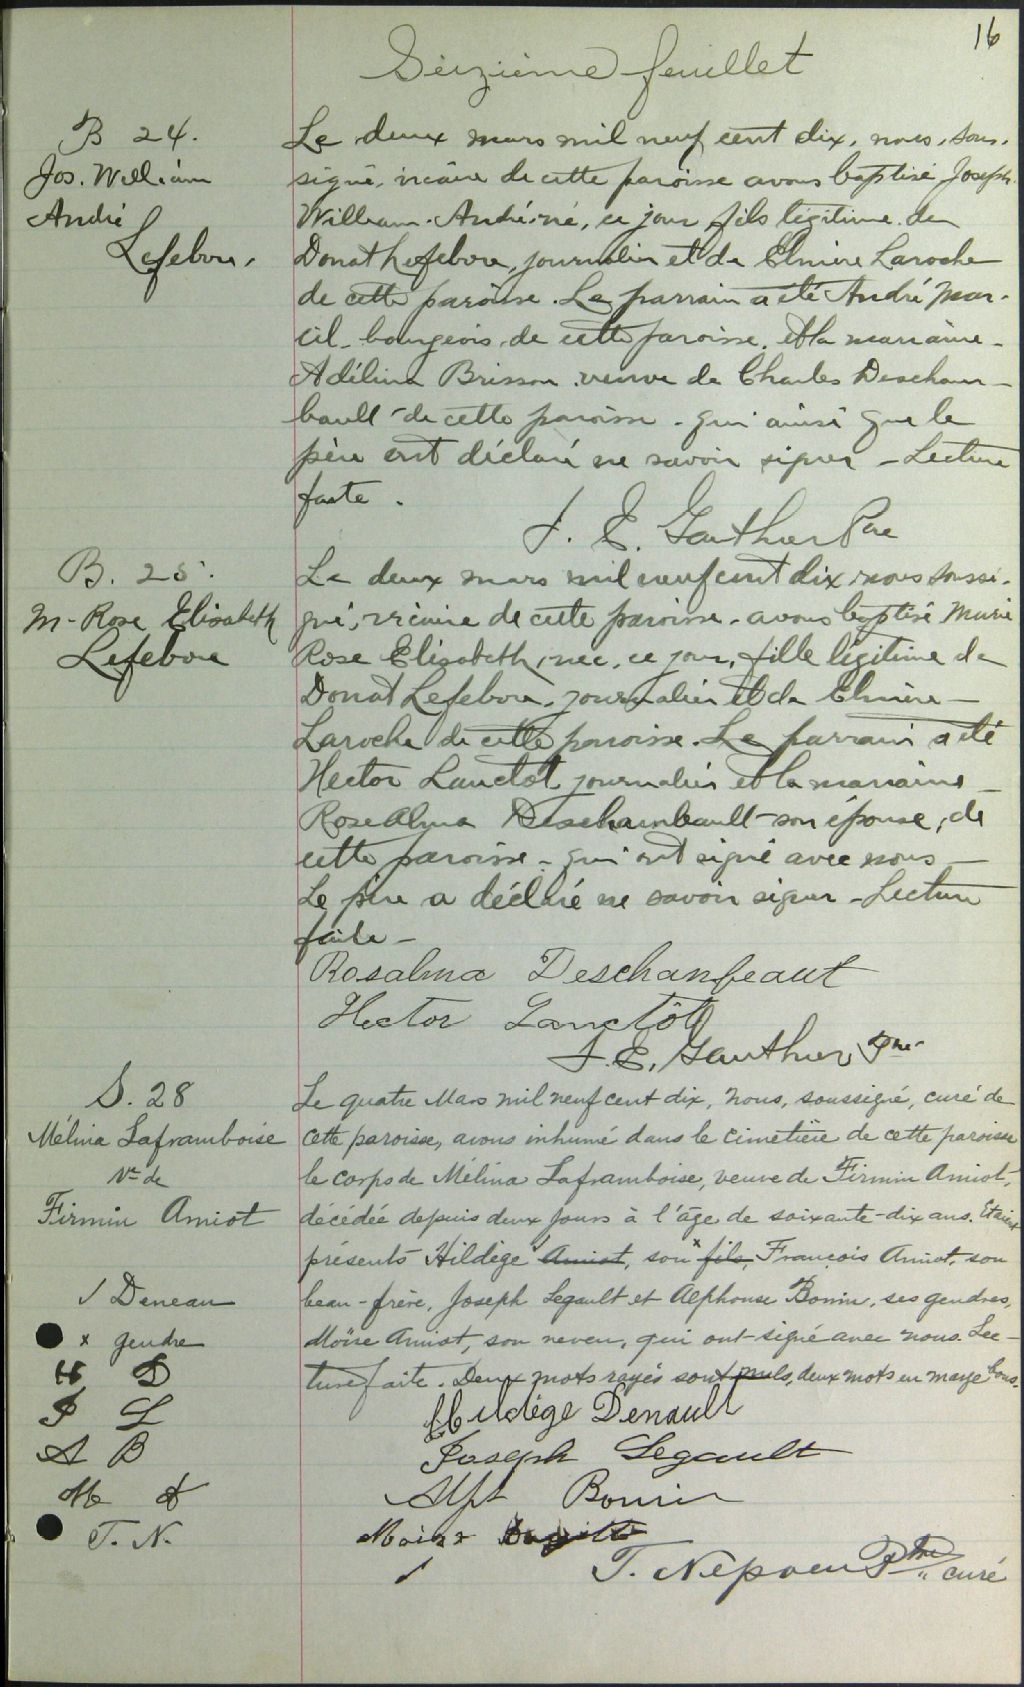 16
Seizième feuillet
B 24.
Jos. William
André
Lefebvre.
Le deux mars mil neuf cent dix, nous, sous-
signé, vicaire de cette paroisse avons baptisé Joseph
William André né, ce jour, fils légitime de
Donat Lefebvre, journalier et de Elmire Laroche
de cette paroisse. Le parrain a été André Mar-
cil, bourgeois de cette paroisse, et la marraine
Adélina Brisson veuve de Charles Descham-
bault de cette paroisse, qui ainsi que le
père ont déclaré ne savoir signer - Lecture
faite.
J. E. Gauthier Ptre
B. 25.
M-Rose Elisabeth
Lefebvre
Le deux mars mil neuf cent dix nous soussi-
gné, vicaire de cette paroisse, avons baptisé Marie
Rose Elisabeth, née, ce jour, fille légitime de
Donat Lefebvre, journalier et de Elmire
Laroche de cette paroisse. Le parrain a été
Hector Lanctôt journalier et la marraine
Rose Alma Deschambault son épouse, de
cette paroisse, qui ont signé avec nous
Le père a déclaré ne savoir signer - Lecture
faite -
Rosalma Deschambeaut
Hector Lanctôt
J. E. Gauthier, Ptre
S. 28
Mélina Laframboise
Ve de
Firmin Amiot
Le quatre Mars mil neuf cent dix, nous, soussigné, curé de
cette paroisse, avons inhumé dans le cimetière de cette paroisse
le corps de Mélina Laframboise, veuve de Firmin Amiot,
décédée depuis deux jours à l'âge de soixante-dix ans. Etaient
présents Hildège Amiot, son x fils, François Amiot, son
beau-frère, Joseph Legault et Alphonse Bonin, ses gendres,
Moïse Amiot, son neveu, qui ont signé avec nous. Lec-
ture faite. Deux mots rayés sont nuls, deux mots en marge bons.
/ Deneau
x gendre
H D
J L
A B
M A
T. N.
Hildège Denault
Joseph Legault
Alph Bonin
Moise
T. Nepveu Ptre curé